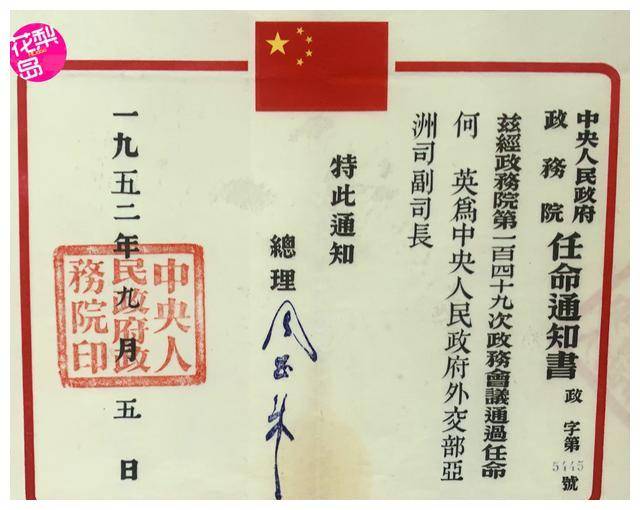 中央人民政府
政務院
任命通知書
政字第5445號
茲經政務院第一百四十九次政務會議通過任命
何英爲中央人民政府外交部亞
洲司副司長
特此通知
總理
周恩来
一九五二年九月五日
中央人
民政府政
務院印
花梨岛